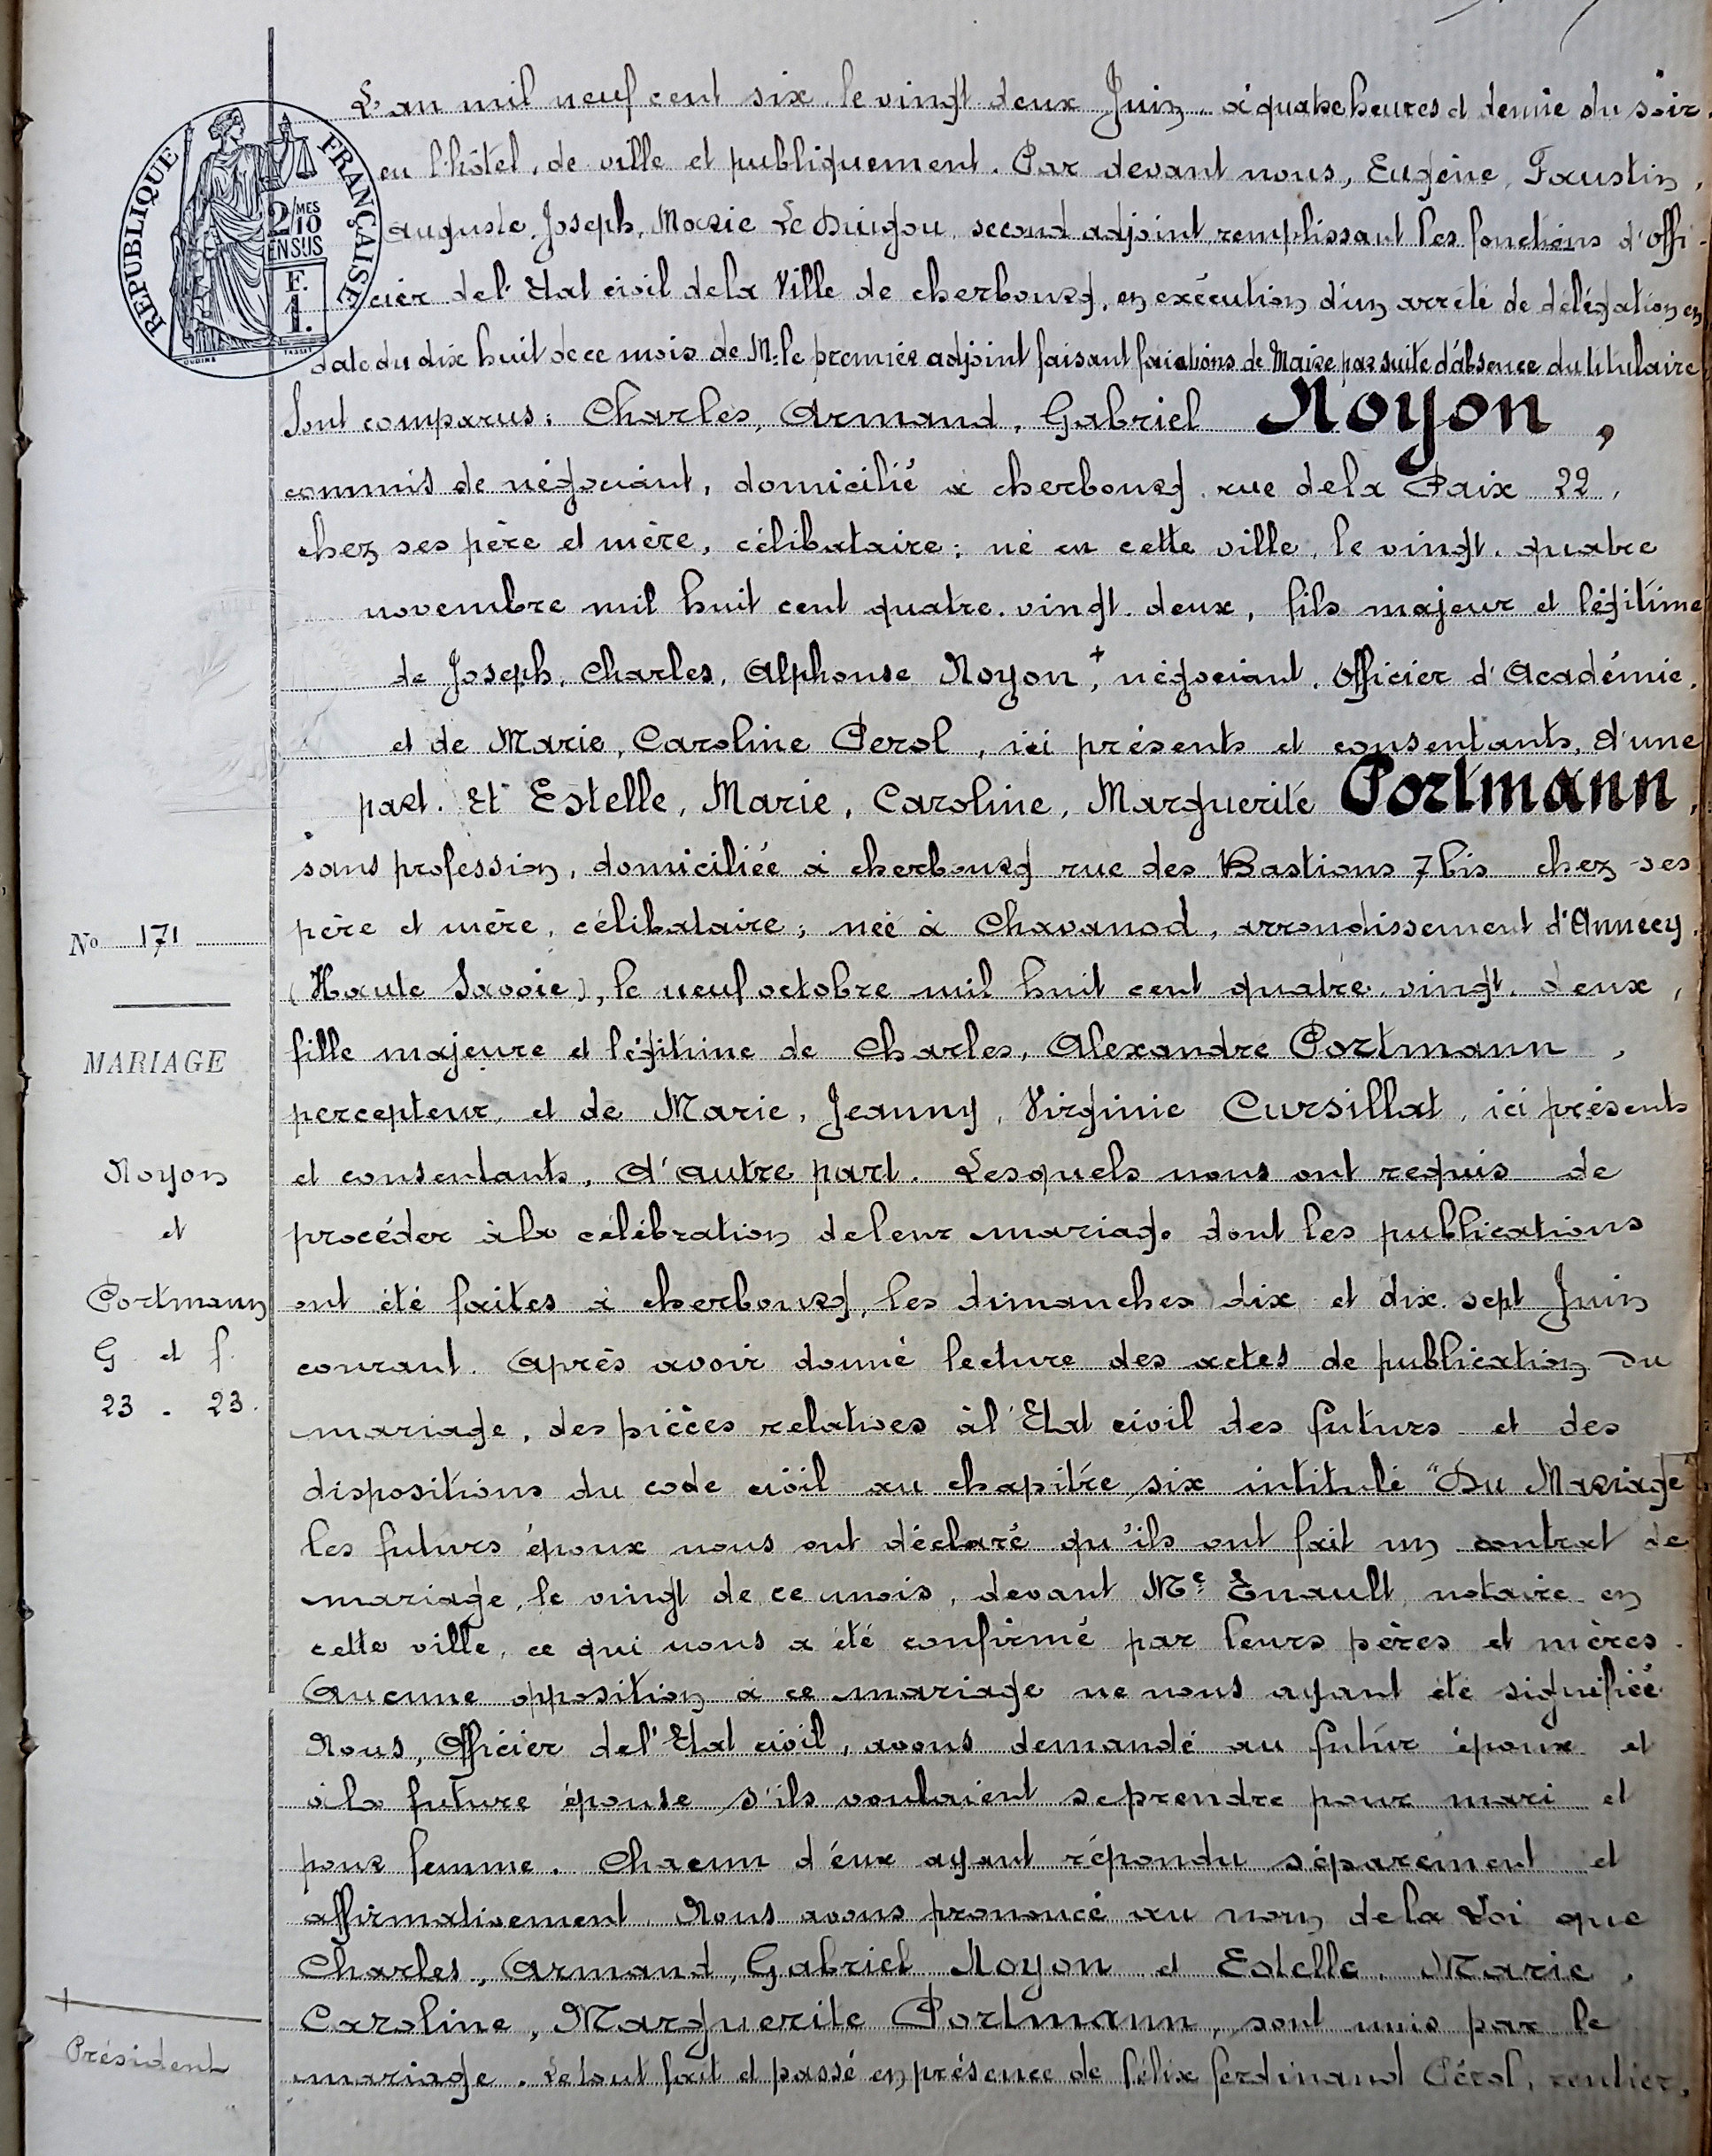 L'an mil neuf cent six, le vingt deux Juin, à quatre heures et demie du soir,
en l'hôtel de ville et publiquement. Par devant nous, Eugène, Faustin,
Auguste, Joseph, Marie Le Duigou, second adjoint, remplissant les fonctions d'offi-
cier de l'Etat civil de la Ville de Cherbourg, en exécution d'un arrêté de délégation en
date du dix huit de ce mois de Mr le premier adjoint faisant fonctions de Maire par suite d'absence du titulaire
Sont comparus: Charles, Armand, Gabriel Noyon,
commis de négociant, domicilié à Cherbourg, rue de la Paix 22,
chez ses père et mère, célibataire; né en cette ville, le vingt-quatre
novembre mil huit cent quatre-vingt-deux, fils majeur et légitime
de Joseph, Charles, Alphonse Noyon, + négociant, Officier d'Académie,
et de Marie, Caroline Perol, ici présents et consentants, d'une
part. Et Estelle, Marie, Caroline, Marguerite Portmann,
sans profession, domiciliée à Cherbourg rue des Bastions 7 bis chez ses
père et mère, célibataire; née à Chavanod, arrondissement d'Annecy,
(Haute Savoie), le neuf octobre mil huit cent quatre-vingt-deux,
fille majeure et légitime de Charles, Alexandre Portmann,
percepteur, et de Marie, Jeanny, Virginie Cursillat, ici présents
et consentants, d'autre part. Lesquels nous ont requis de
procéder à la célébration de leur mariage dont les publications
ont été faites à Cherbourg, les dimanches dix et dix-sept Juin
courant. Après avoir donné lecture des actes de publication du
mariage, des pièces relatives à l'Etat civil des futurs et des
dispositions du code civil au chapitre six intitulé "Du Mariage"
les futurs époux nous ont déclaré qu'ils ont fait un contrat de
mariage, le vingt de ce mois, devant Me Enault, notaire en
cette ville, ce qui nous a été confirmé par leurs pères et mères.
Aucune opposition à ce mariage ne nous ayant été signifiée
Nous, Officier de l'Etat civil, avons demandé au futur époux et
à la future épouse s'ils voulaient se prendre pour mari et
pour femme. Chacun d'eux ayant répondu séparément et
affirmativement, Nous avons prononcé au nom de la Loi que
Charles, Armand, Gabriel Noyon et Estelle, Marie,
Caroline, Marguerite Portmann, sont unis par le
mariage. Le tout fait et passé en présence de Félix Ferdinand Pérol, rentier,
RÉPUBLIQUE FRANÇAISE
2/10 MES
EN SUS
F.
1.
OUDINÉ
TASSET
No 171
MARIAGE
Noyon
et
Portmann
G. et f.
23 - 23.
Président